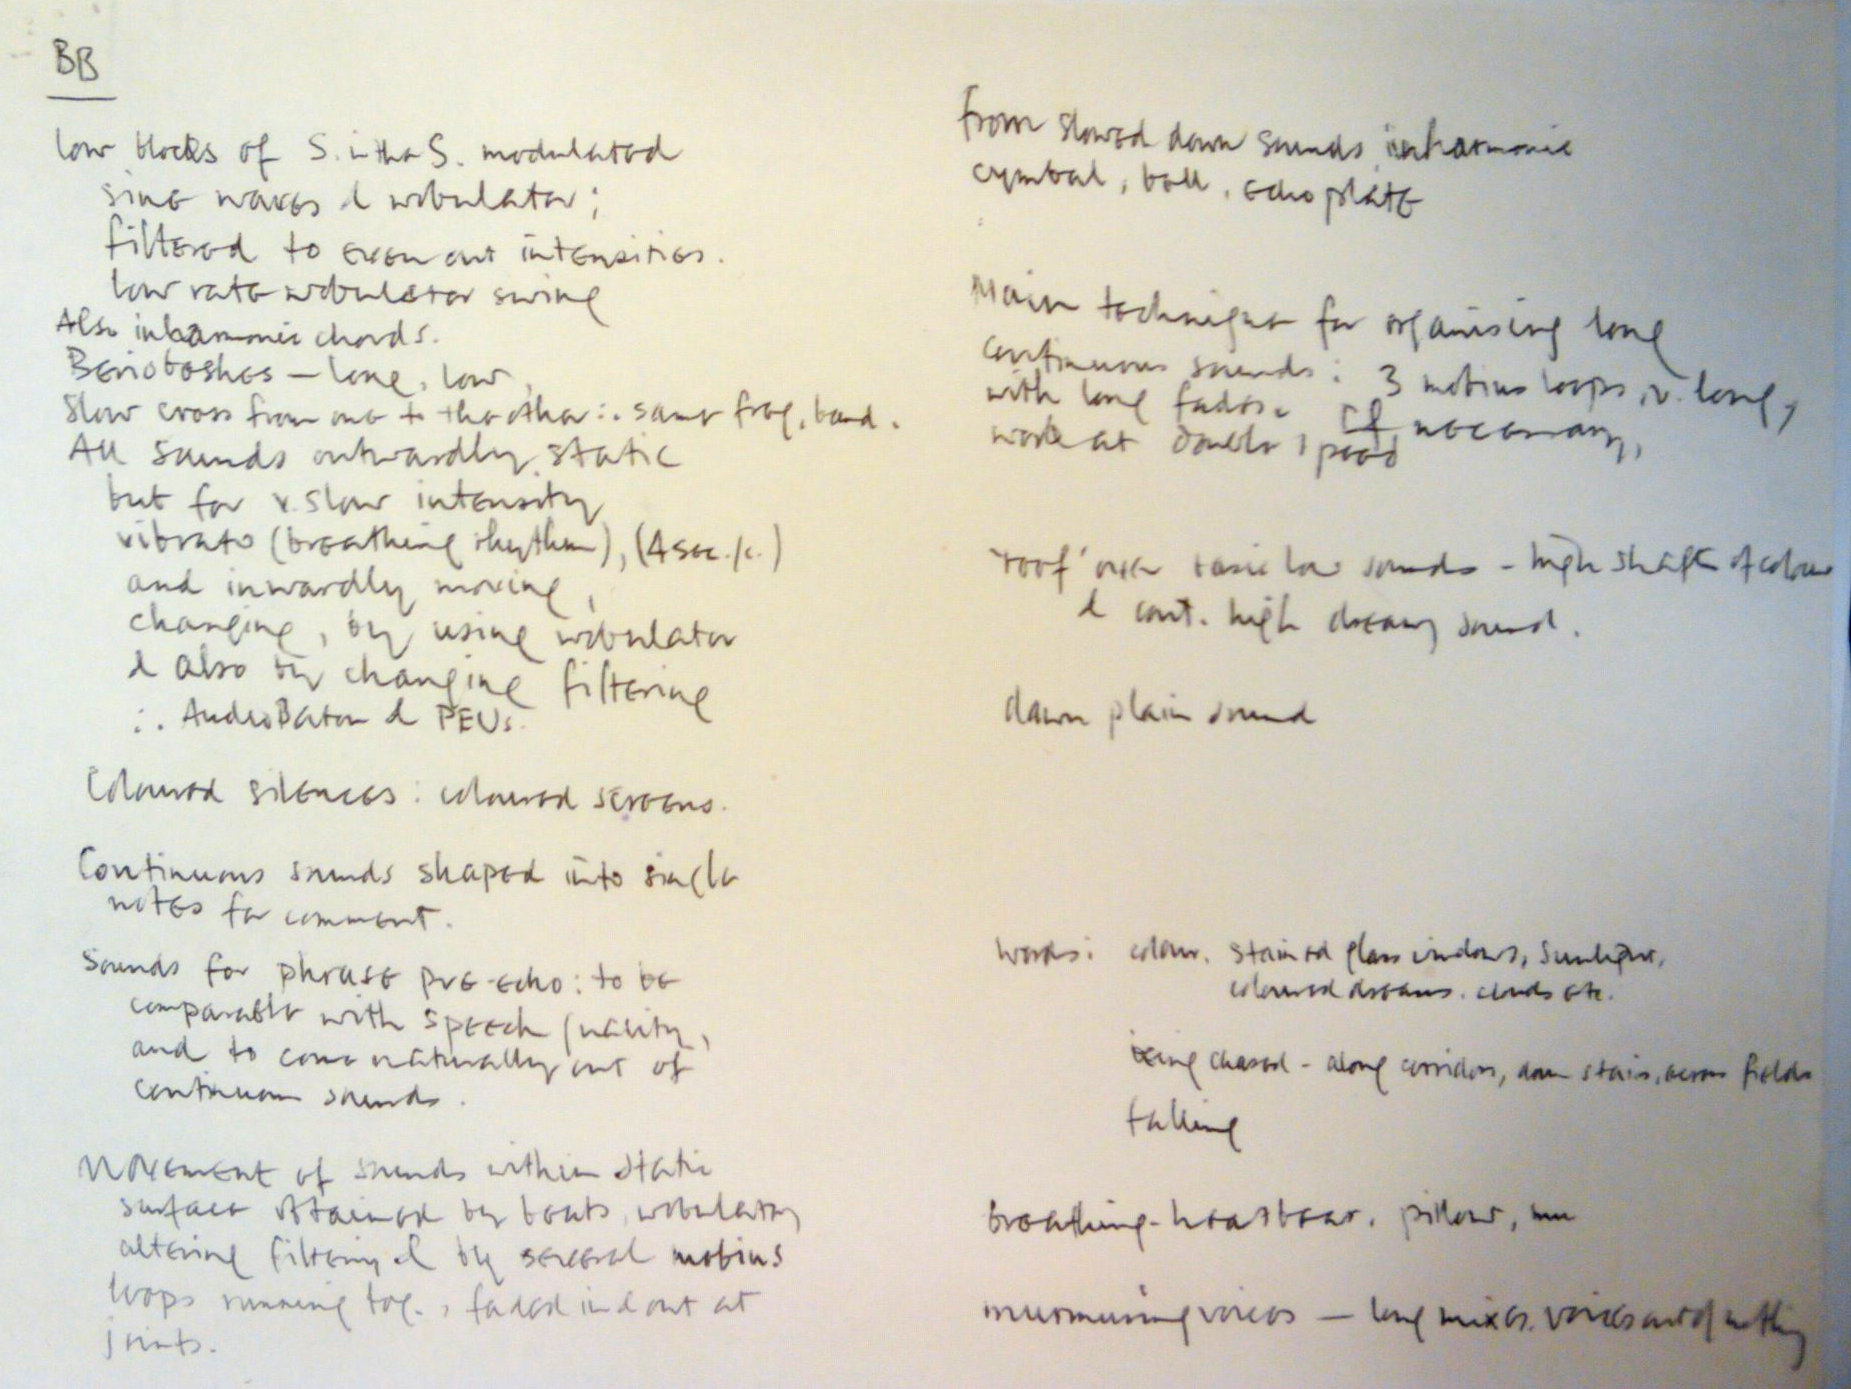 BB
low blocks of S. in the S. modulated
sine waves & wobulator;
filtered to even out intensities.
low rate wobulator swing
Also inharmonic chords.
Beriotoshes – long, low,
Slow cross from one to the other ∴ same freq. band.
All sounds outwardly static
but for v. slow intensity
vibrato (breathing rhythm), (4 sec./c.)
and inwardly moving,
changing, by using wobulator
& also by changing filtering
∴ AudioBaton & PEUs.
Coloured silences: coloured screens.
Continuous sounds shaped into single
notes for comment.
Sounds for phrase pre-echo: to be
comparable with speech quality,
and to come naturally out of
continuum sounds.
Movement of sounds within static
surface attained by beats, wobulator,
altering filtering & by several mobius
loops running tog., faded in & out at
joints.
From slowed down sounds inharmonic
cymbal, bell, echo plate
Main technique for organising long
continuous sounds: 3 mobius loops, v. long,
with long fades. If necessary,
work at double speed
'roof' over basic low sounds – high shaft of colour
& cont. high dreamy sound.
dawn plain sound
words: colour. stained glass windows, sunlight,
coloured dreams. clouds etc.
being chased – along corridors, down stairs, across fields
falling
breathing – heartbeat. pillow,
murmuring voices – long mixes. voices out of nothing